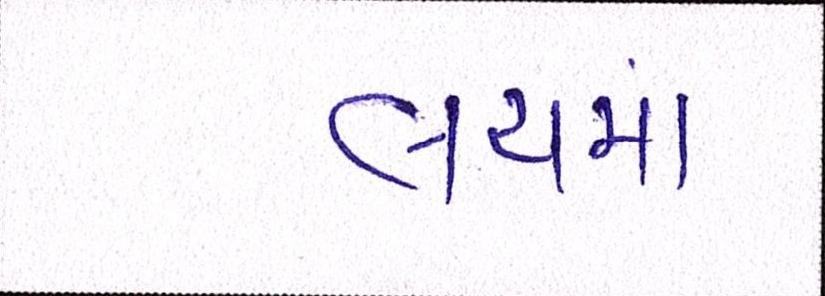 લયમાં